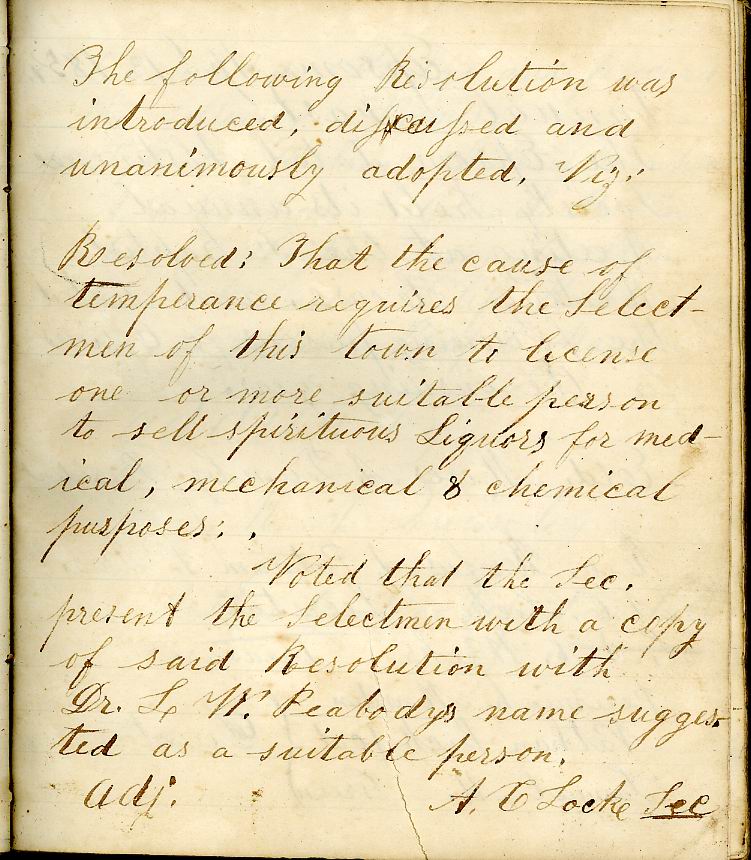 The following Resolution was
introduced, discussed and
unanimously adopted, Viz:
Resolved: That the cause of
temperance requires the Select-
men of this town to license
one or more suitable person
to sell spirituous Liquors for med-
ical, mechanical & chemical
purposes:.
Voted that the Sec.
present the Selectmen with a copy
of said Resolution with
Dr. L W. Peabodys name sugges-
ted as a suitable person.
Adj. A. C Locke Sec